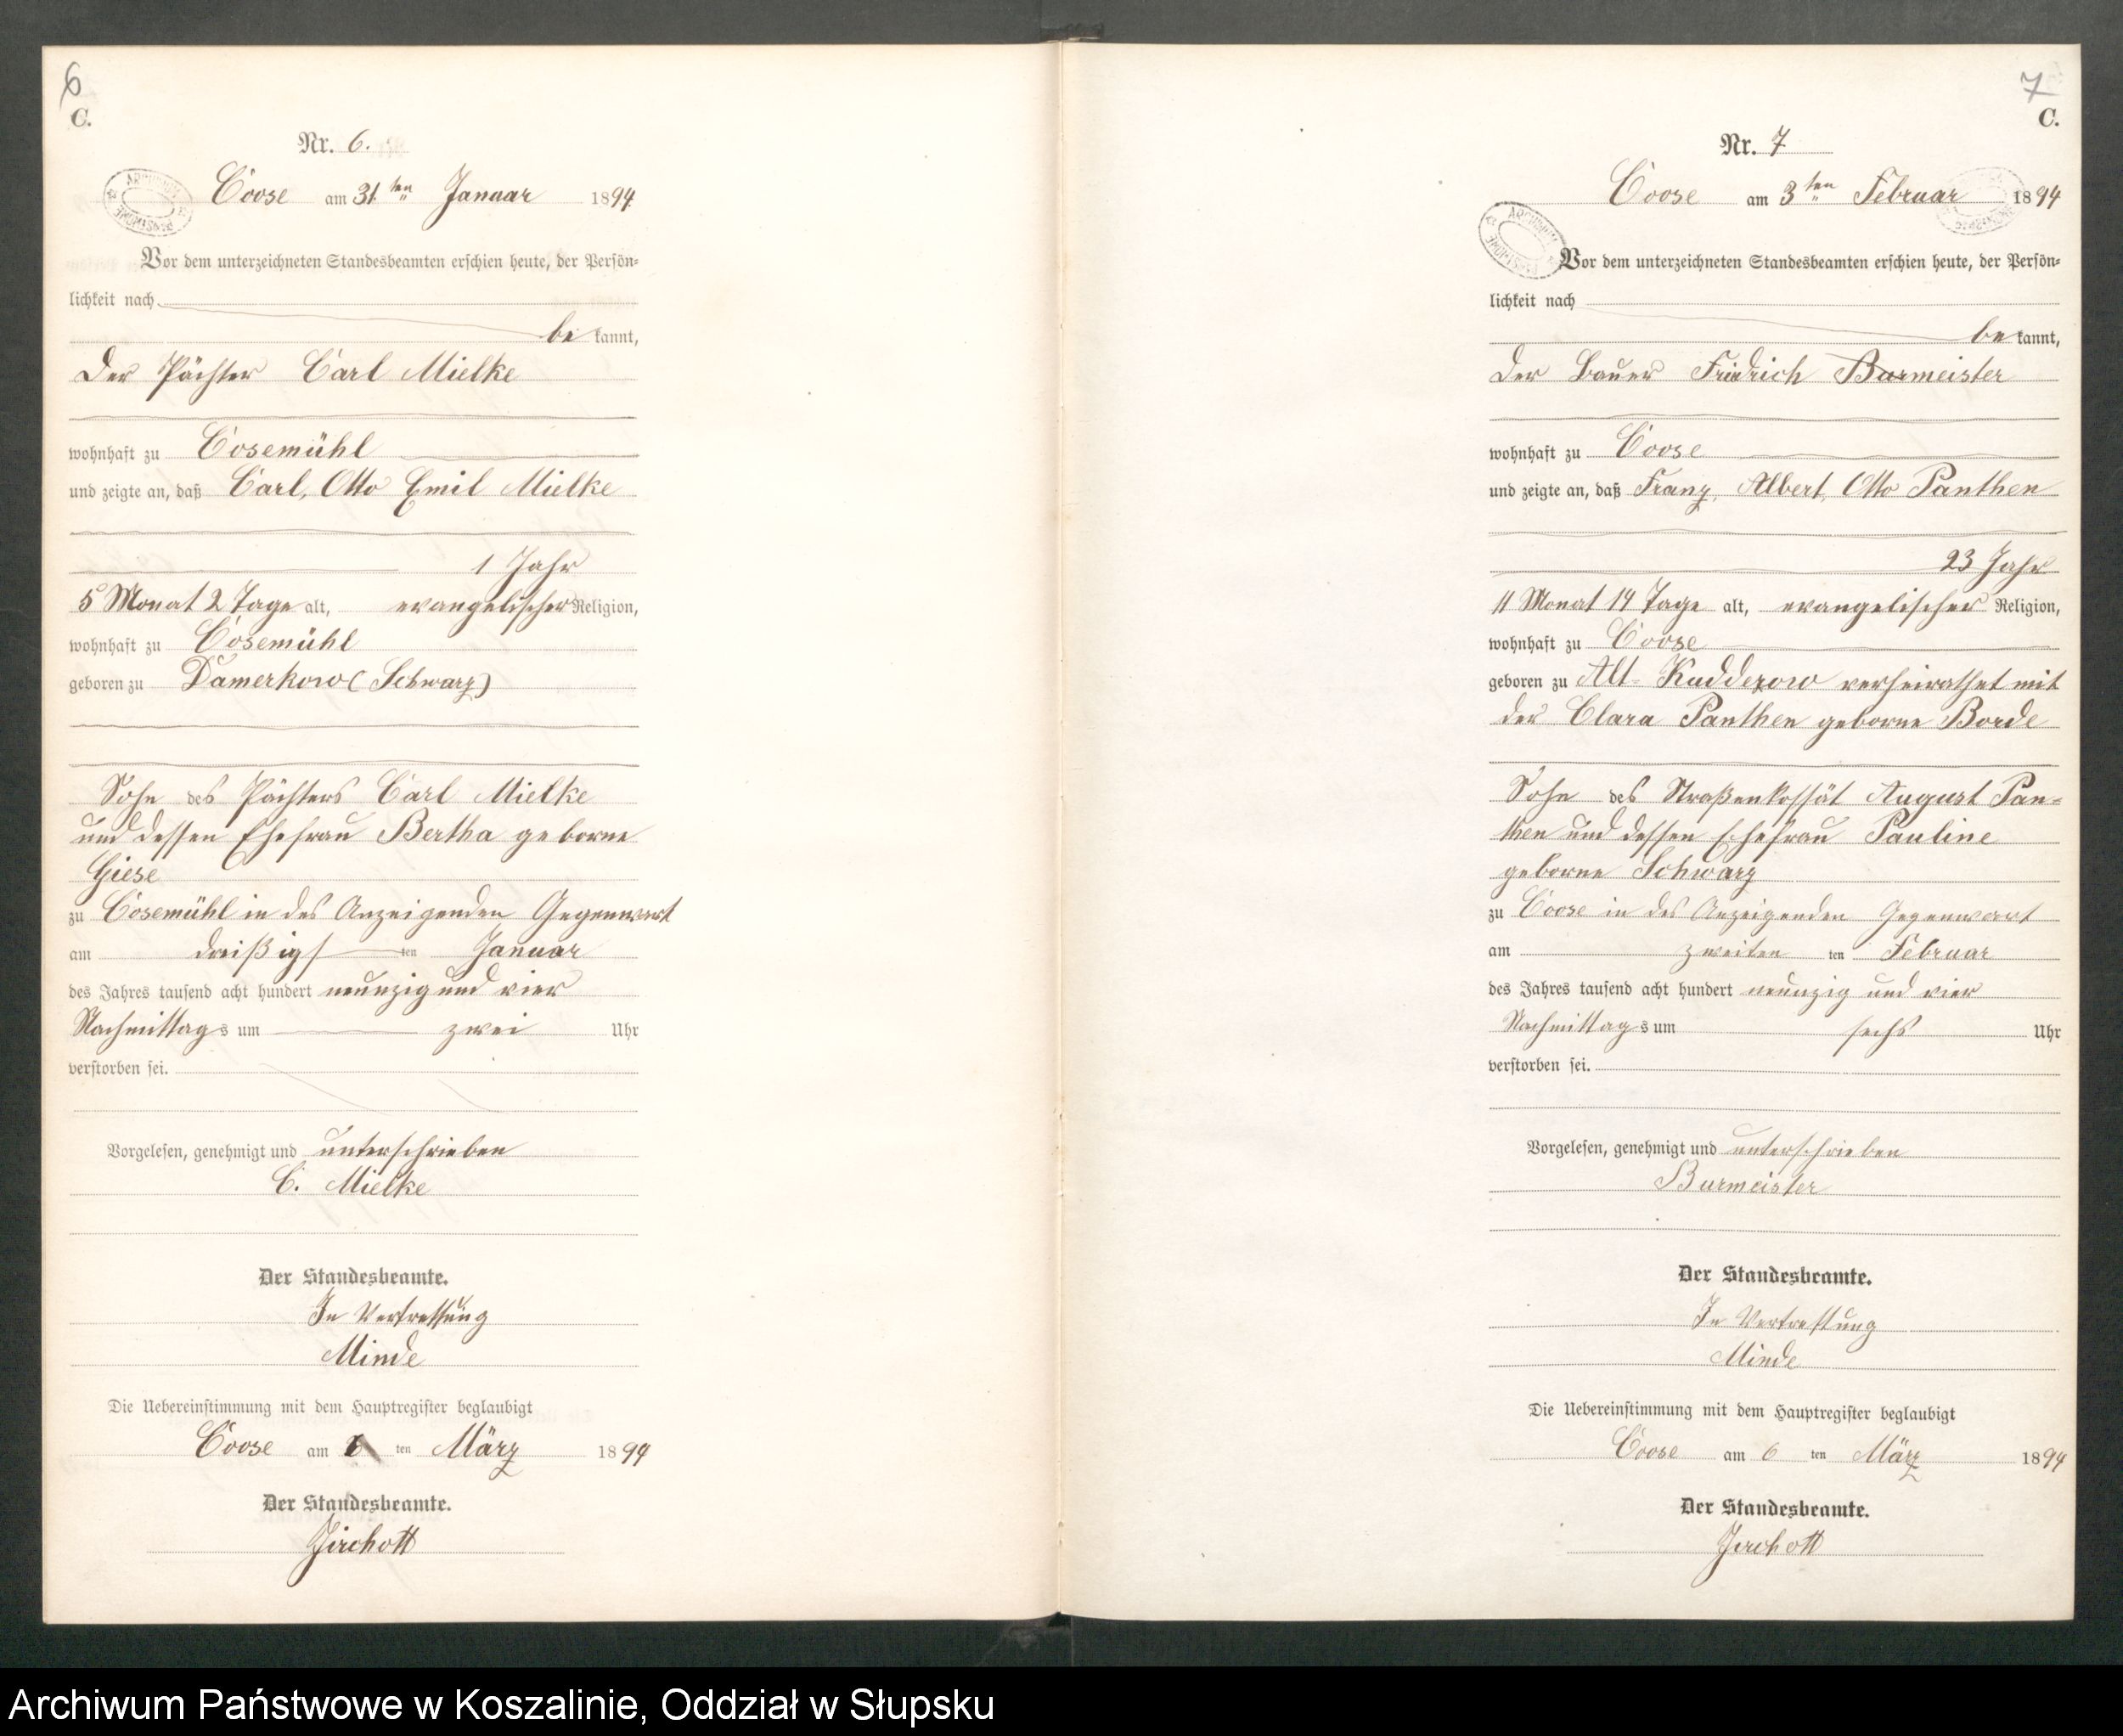 6
C.
Nr. 6.
Coose am 31ten Januar 1894.
Vor dem unterzeichneten Standesbeamten erschien heute, der Persön-
lichkeit nach
bekannt,
Der Pächter Carl Mielke
wohnhaft zu Cosemühl
und zeigte an, daß Carl, Otto Emil Mielke
1 Jahr
5 Monat 2 Tage alt, evangelischer Religion,
wohnhaft zu Cosemühl
geboren zu Damerkow (Schwarz)
Sohn des Pächters Carl Mielke
und dessen Ehefrau Bertha geborne
Giese
zu Cosemühl in des Anzeigenden Gegenwart
am dreißigsten Januar
des Jahres tausend acht hundert neunzig und vier
Nachmittags um zwei Uhr
verstorben sei.
Vorgelesen, genehmigt und unterschrieben
C. Mielke
Der Standesbeamte.
In Vertretung
Minde
Die Uebereinstimmung mit dem Hauptregister beglaubigt
Coose am ten März 1894
Der Standesbeamte.
Jirchott
7
C.
Nr. 7
Coose am 3ten Februar 1894
Vor dem unterzeichneten Standesbeamten erschien heute, der Persön-
lichkeit nach
bekannt,
Der Bauer Friedrich Burmeister
wohnhaft zu Coose
und zeigte an, daß Franz, Albert, Otto Panthen
23 Jahr
11 Monat 14 Tage alt, evangelischer Religion,
wohnhaft zu Coose
geboren zu Alt-Kuddezow verheirathet mit
der Clara Panthen geborne Borde
Sohn des Straßenkossät August Pan-
then und dessen Ehefrau Pauline
geborne Schwarz
zu Coose in des Anzeigenden Gegenwart
am zweiten ten Februar
des Jahres tausend acht hundert neunzig und vier
Nachmittags um sechs Uhr
verstorben sei.
Vorgelesen, genehmigt und unterschrieben
Burmeister
Der Standesbeamte.
In Vertretung
Minde
Die Uebereinstimmung mit dem Hauptregister beglaubigt
Coose am 6 ten März 1894
Der Standesbeamte.
Jirchott
Archiwum Państwowe w Koszalinie, Oddział w Słupsku